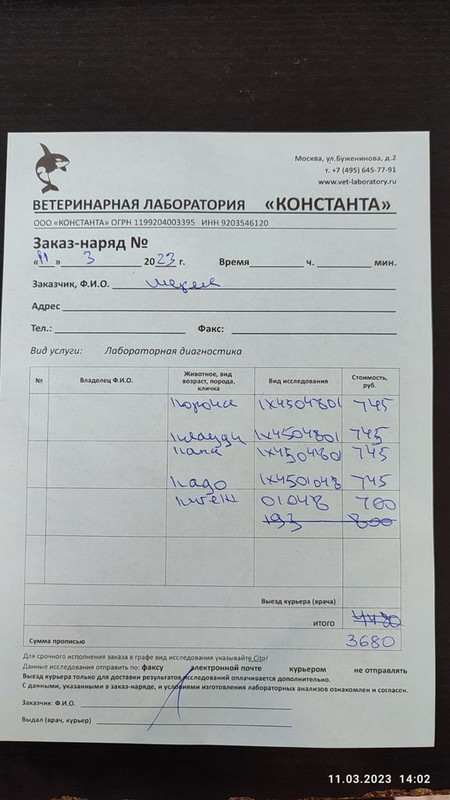 Москва, ул.Буженинова, д.2
т. +7 (495) 645-77-91
www.vet-laboratory.ru
ВЕТЕРИНАРНАЯ ЛАБОРАТОРИЯ «КОНСТАНТА»
ООО «КОНСТАНТА» ОГРН 1199204003395 ИНН 9203546120
Заказ-наряд №
«11» 3 2023 г. Время ч. мин.
Заказчик, Ф.И.О.
Адрес
Тел.: Факс:
Вид услуги: Лабораторная диагностика
№ Владелец Ф.И.О. Животное, вид возраст, порода, кличка Вид исследования Стоимость, руб.
745
745
745
745
700
193 800
Выезд курьера (врача)
ИТОГО 4480
Сумма прописью 3680
Для срочного исполнения заказа в графе вид исследования указывайте Cito!
Данные исследования отправить по: факсу электронной почте курьером не отправлять
Выезд курьера только для доставки результатов исследований оплачивается дополнительно.
С данными, указанными в заказ-наряде, и условиями изготовления лабораторных анализов ознакомлен и согласен.
Заказчик: Ф.И.О.
Выдал (врач, курьер)
11.03.2023 14:02